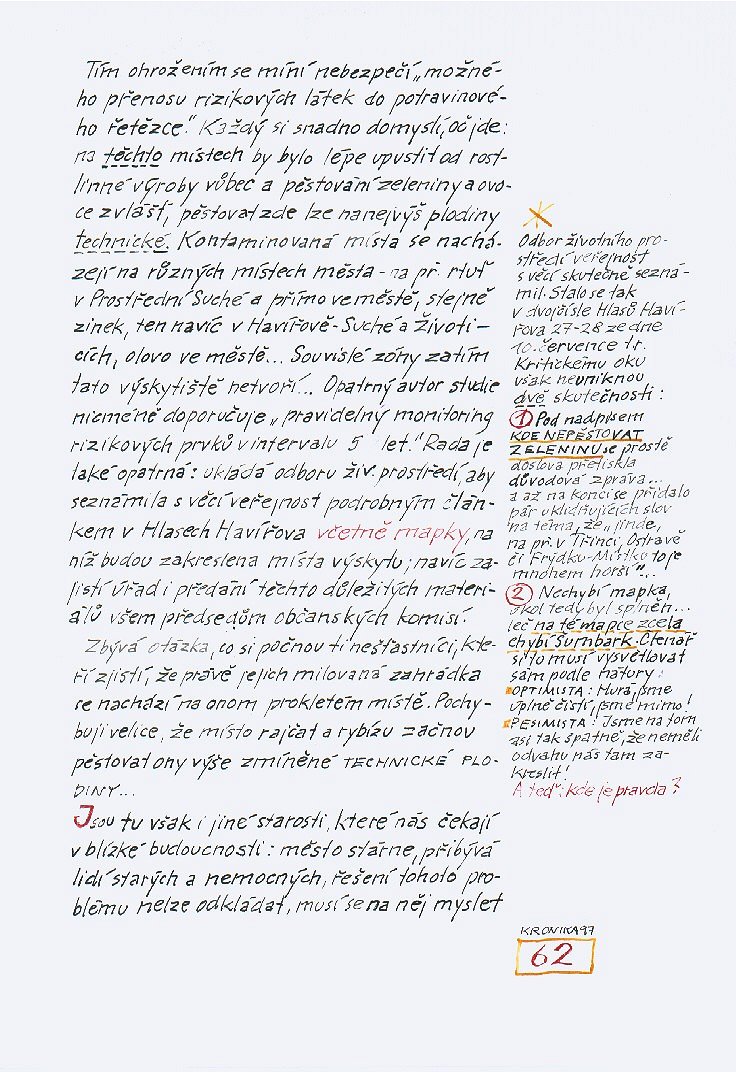 Tím ohrožením se míní nebezpečí „možné-
ho přenosu rizikových látek do potravinové-
ho řetězce." Každý si snadno domyslí, oč jde:
na těchto místech by bylo lépe upustit od rost-
linné výroby vůbec a pěstování zeleniny a ovo-
ce zvlášť, pěstovat zde lze nanejvýš plodiny
technické. Kontaminovaná místa se nachá-
zejí na různých místech města - na př. rtuť
v Prostřední Suché a přímo ve městě, stejně
zinek, ten navíc v Havířově-Suché a Životi-
cích, olovo ve městě... Souvislé zóny zatím
tato výskytiště netvoří... Opatrný autor studie
nicméně doporučuje „pravidelný monitoring
rizikových prvků v intervalu 5 let." Rada je
také opatrná: ukládá odboru živ. prostředí, aby
seznámila s věcí veřejnost podrobným člán-
kem v Hlasech Havířova včetně mapky, na
níž budou zakreslena místa výskytu; navíc za-
jistí úřad i předání těchto důležitých materi-
álů všem předsedům občanských komisí.
Zbývá otázka, co si počnou ti nešťastníci, kte-
ří zjistí, že právě jejich milovaná zahrádka
se nachází na onom prokletém místě. Pochy-
buji velice, že místo rajčat a rybízu začnou
pěstovat ony výše zmíněné TECHNICKÉ PLO-
DINY...
Jsou tu však i jiné starosti, které nás čekají
v blízké budoucnosti: město stárne, přibývá
lidí starých a nemocných, řešení tohoto pro-
blému nelze odkládat, musí se na něj myslet
Odbor životního pro-
středí veřejnost
s věcí skutečně sezná-
mil. Stalo se tak
v dvojčísle Hlasů Haví-
řova 27-28 ze dne
10. července t.r.
Kritickému oku
však neuniknou
dvě skutečnosti:
1 Pod nadpisem
KDE NEPĚSTOVAT
ZELENINU se prostě
doslova přetiskla
důvodová zpráva...
a až na konci se přidalo
pár uklidňujících slov
na téma, že „jinde,
na př. v Třinci, Ostravě
či Frýdku-Místku to je
mnohem horší"...
2 Nechybí mapka,
úkol tedy byl splněn...
leč na té mapce zcela
chybí Šumbark. Čtenář
si to musí vysvětlovat
sám podle nátury:
OPTIMISTA: Hurá, jsme
úplně čistí, jsme mimo!
PESIMISTA: Jsme na tom
asi tak špatně, že neměli
odvahu nás tam za-
kreslit!
A teď: kde je pravda?
KRONIKA 97
62